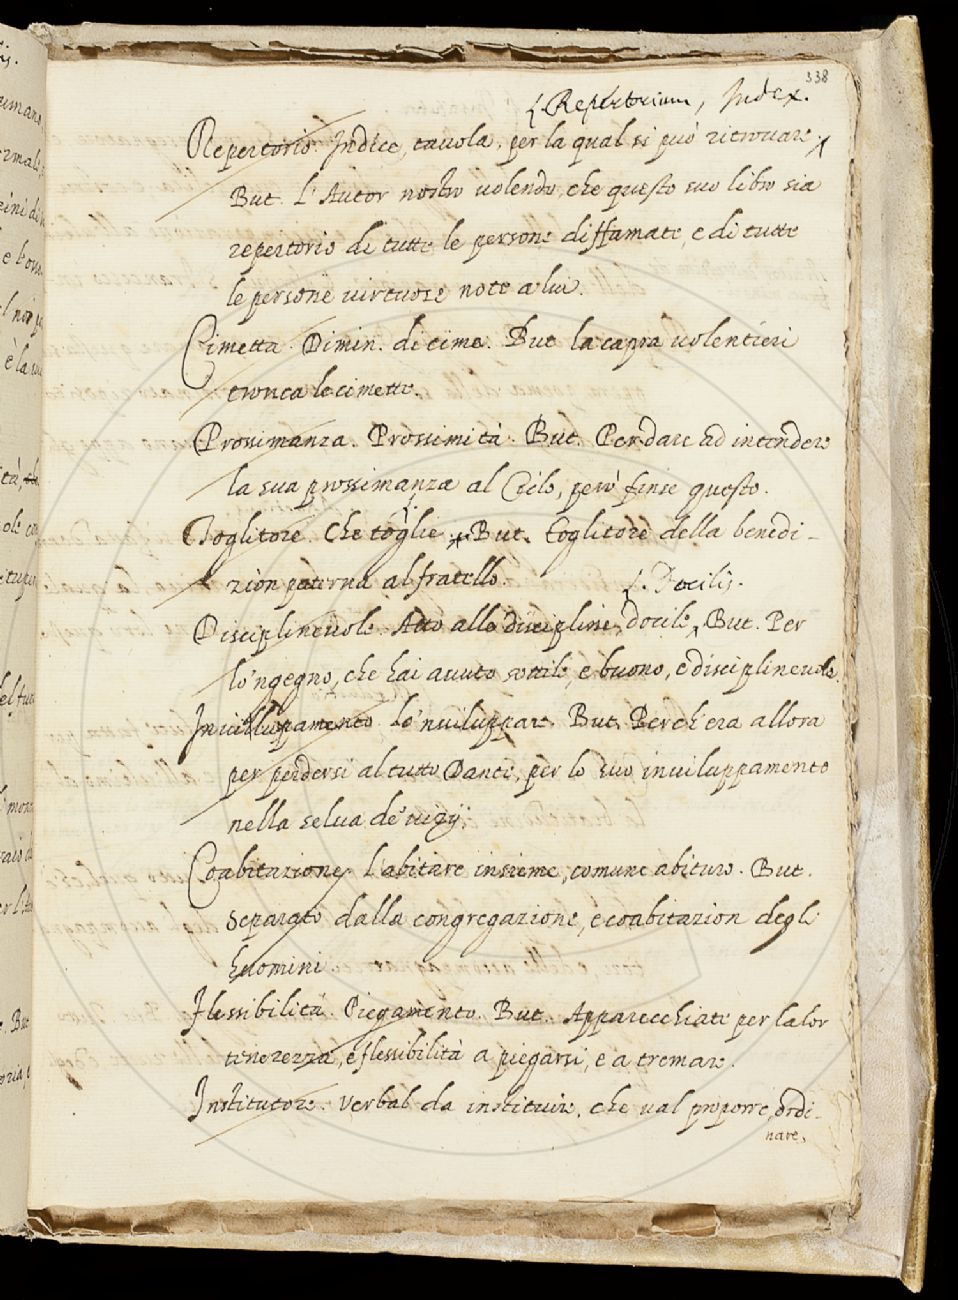 338
Repertorium, Index.
Repertorio. Indice, tavola, per la qual si può ritrovare.
But. L'Autor nostro volendo, che questo suo libro sia
repertorio di tutte le persone diffamate, e di tutte
le persone virtuose note a lui.
Cimetta. Dimin. di cima. But. la capra volentieri
tronca le cimette.
Prossimanza. Prossimità. But. Per dare ad intendere
la sua prossimanza al Cielo, però finse questo.
Toglitore. Che toglie. But. Toglitore della benedi-
zion paterna al fratello.
Docilis.
Disciplinevole. Atto alle discipline, docile. But. Per
lo 'ngegno, che hai avuto sottile, e buono, e disciplinevole.
Inviluppamento. Lo 'nviluppare. But. Perch'era allora
per perdersi al tutto Dante, per lo suo inviluppamento
nella selva de' vizij.
Coabitazione. L'abitare insieme, comune abituro. But.
Separato dalla congregazione, e coabitazion degli
huomini.
Flessibilità. Piegamento. But. Apparecchiate per la lor
tenerezza, e flessibilità a piegarsi, e a tremare.
Institutore. Verbal. da instituire, che val proporre, ordi-
nare,